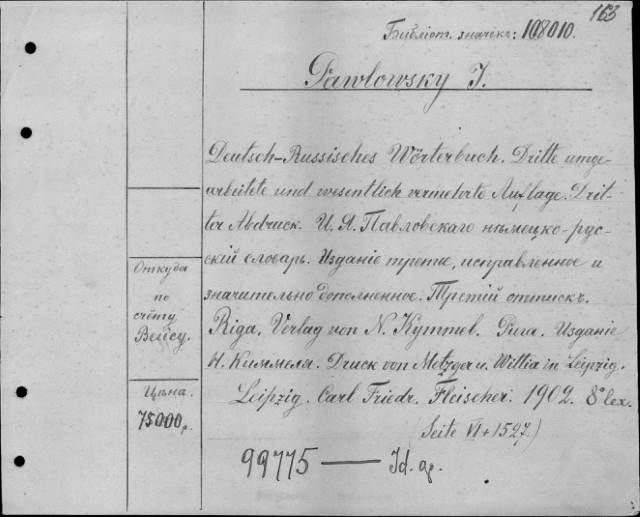 163
Библіот. значекъ: 108010.
Pawlowsky J.
Deutsch-Russisches Wörterbuch. Dritte umge-
arbeitete und wesentlich vermehrte Auflage. Drit-
ter Abdruck. И. Я. Павловскаго нѣмецко-рус-
скій словарь. Изданіе третье, исправленное и
значительно дополненное. Третій оттискъ.
Riga. Verlag von N. Kymmel. Рига. Изданіе
Н. Киммеля. Druck von Metzger u. Wittig in Leipzig.
Leipzig. Carl Friedr. Fleischer. 1902. 8° lex.
(Seite VI + 1527.)
99775 —
Откуда
по
счёту
Вейсу.
Цѣна.
75000 р.